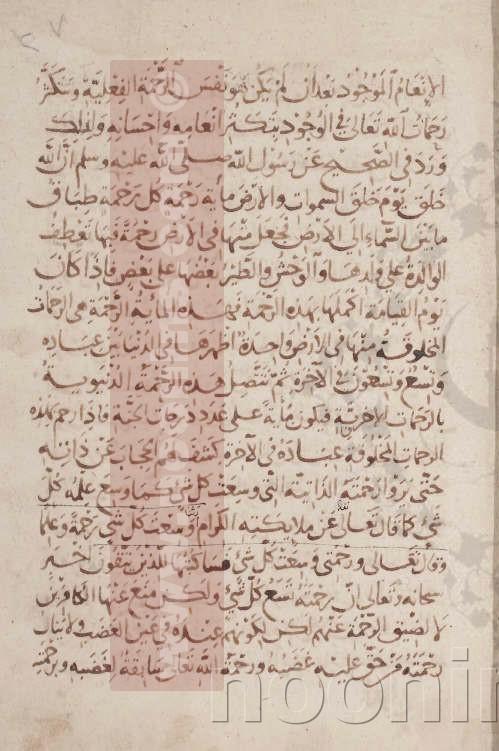 الإنعام الموجود بعد أن لم يكن هو نفس الرحمة الفعلية وتتكثر
رحمات الله تعالى في الوجود بتكثر انعامه واحسانه ولذلك
ورد في الصحيح عن رسول الله صلى الله عليه وسلم ان الله
خلق يوم خلق السموات والارض ماية رحمة كل رحمة طباق
ما بين السماء الى الارض فجعل منها في الارض رحمة فبها تعطف
الوالدة على ولدها والوحش والطير بعضها على بعض فاذا كان
يوم القيامة اكملها بهذه الرحمة فهذه الماية الرحمة هي الرحمات
المخلوقة منها في الارض واحدة اظهرها في الدنيا بين عباده
وتسع وتسعون في الاخرة ثم تتصل هذه الرحمة الدنيوية
بالرحمات الاخروية فيكون ماية على عدد درجات الجنة فاذا رحم بهذه
الرحمات المخلوقة عباده في الآخرة كشف لهم الحجاب عن ذاته
حتى يروا رحمته الذاتية التي وسعت كل شيء كما وسع علمه كل
شيء كما قال تعالى عن ملايكته الكرام ربنا وسعت كل شيء رحمة وعلما
وقال تعالى ورحمتي وسعت كل شيء فساكتبها للذين يتقون اخبر
سبحانه وتعالى ان رحمته تسع كل شيء ولكن منع عنها الكافرين
لا لضيق الرحمة عنهم لكن لكونهم عنده في عين الغضب ولا تنال
رحمته من حق عليه غضبه ورحمة الله تعالى سابقة لغضبه وبرحمته
noonin